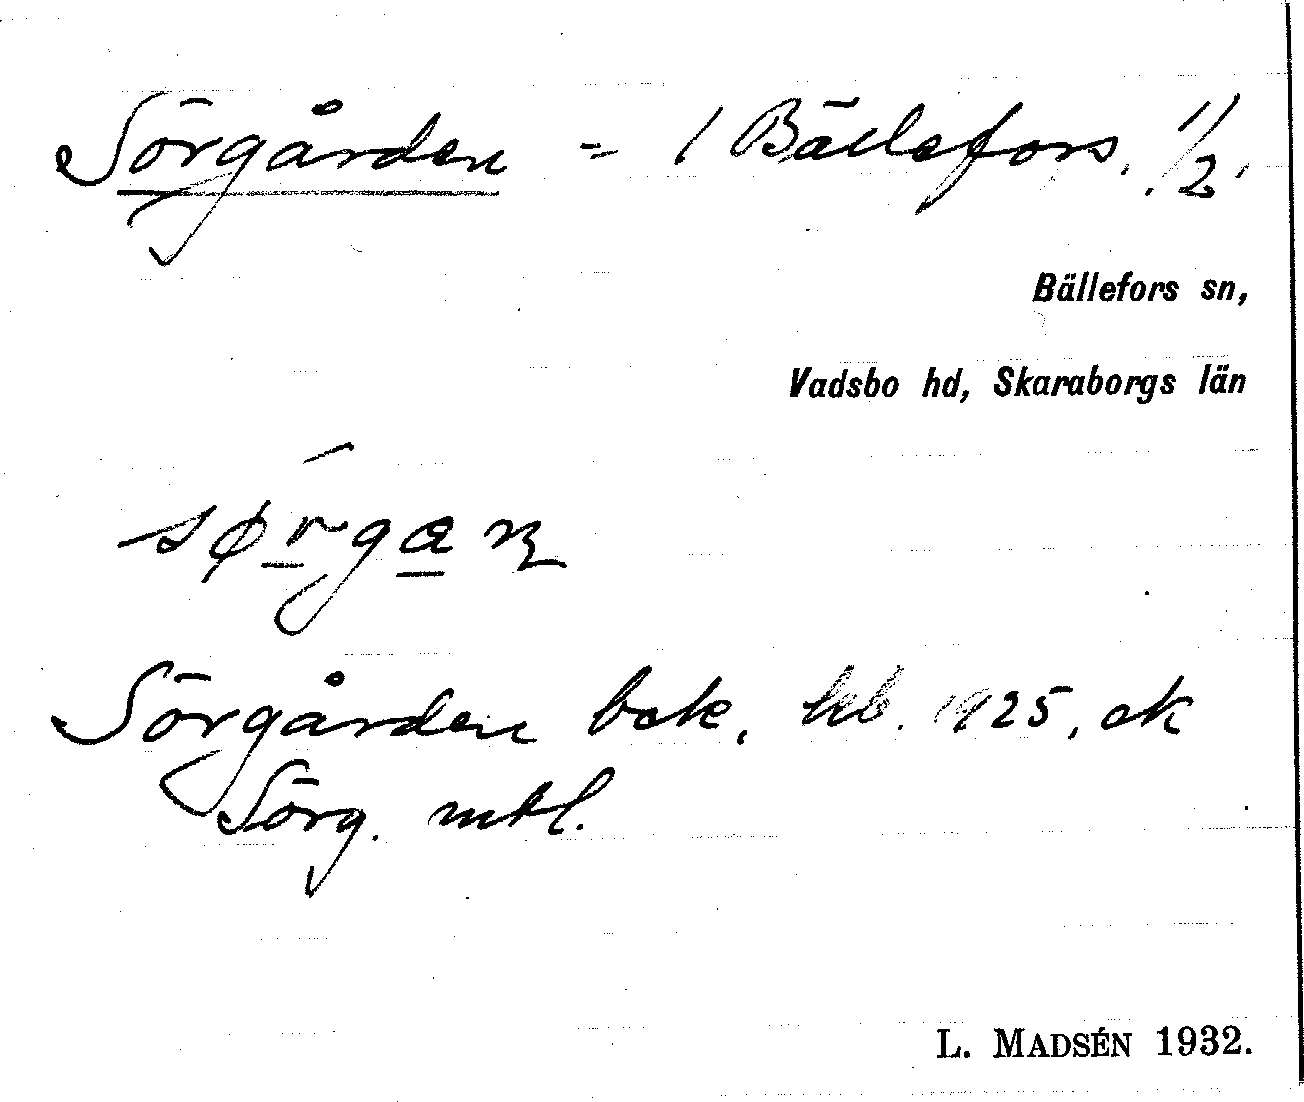 Sörgården = 1 Bällefors. 1/2.
Bällefors sn,
Vadsbo hd, Skaraborgs län
Sörgården bek, hb. 1925, ek
Sörg. mtl.
L. MADSÉN 1932.